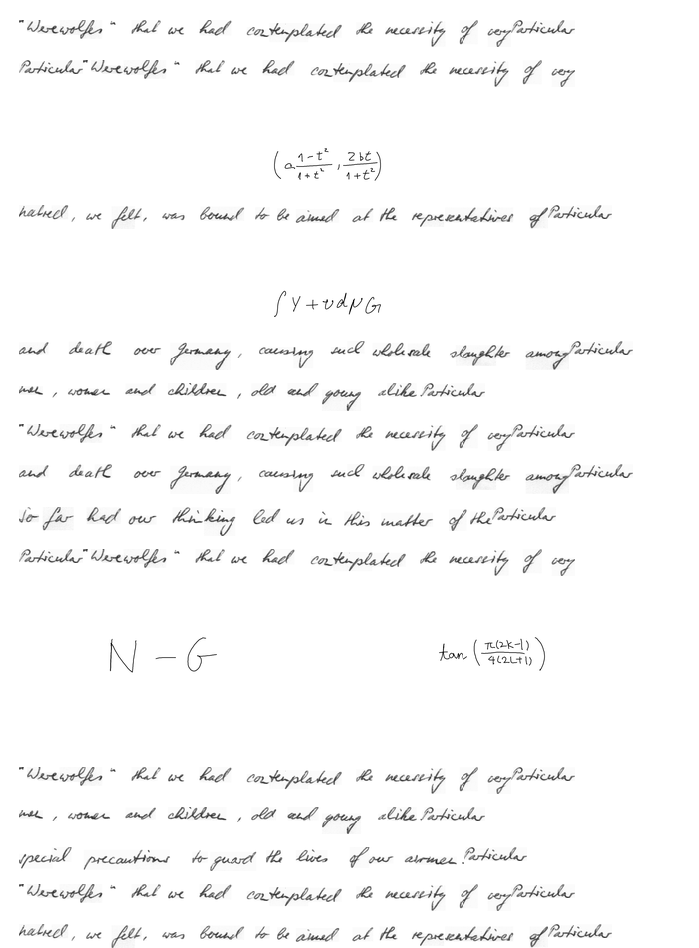 "Werewolfes" that we had contemplated the necessity of very Particular
Particular "Werewolfes" that we had contemplated the necessity of very
(a \frac{1-t^2}{1+t^2}, \frac{2bt}{1+t^2})
hatred, we felt, was bound to be aimed at the representatives of Particular
∫ Y + v d N G
and death over Germany, causing such wholesale slaughter among Particular
men, women and children, old and young alike Particular
"Werewolfes" that we had contemplated the necessity of very Particular
and death over Germany, causing such wholesale slaughter among Particular
So far had our thinking led us in this matter of the Particular
Particular "Werewolfes" that we had contemplated the necessity of very
N - G
tan (\frac{π(2k-1)}{4(2L+1)})
"Werewolfes" that we had contemplated the necessity of very Particular
men, women and children, old and young alike Particular
special precautions to guard the lives of our airmen. Particular
"Werewolfes" that we had contemplated the necessity of very Particular
hatred, we felt, was bound to be aimed at the representatives of Particular